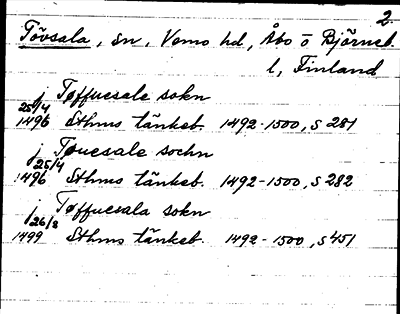 2.
Tövsala, sn, Vemo hd, Åbo o Björneb.
l, Finland
j Tøffuesale sokn
25/4
1496 Sthms tänkeb. 1492-1500, s 281
j Touesale sochn
25/4
1496 Sthms tänkeb. 1492-1500, s 282
j Tøffuesala sokn
26/8
1499 Sthms tänkeb. 1492-1500, s 451